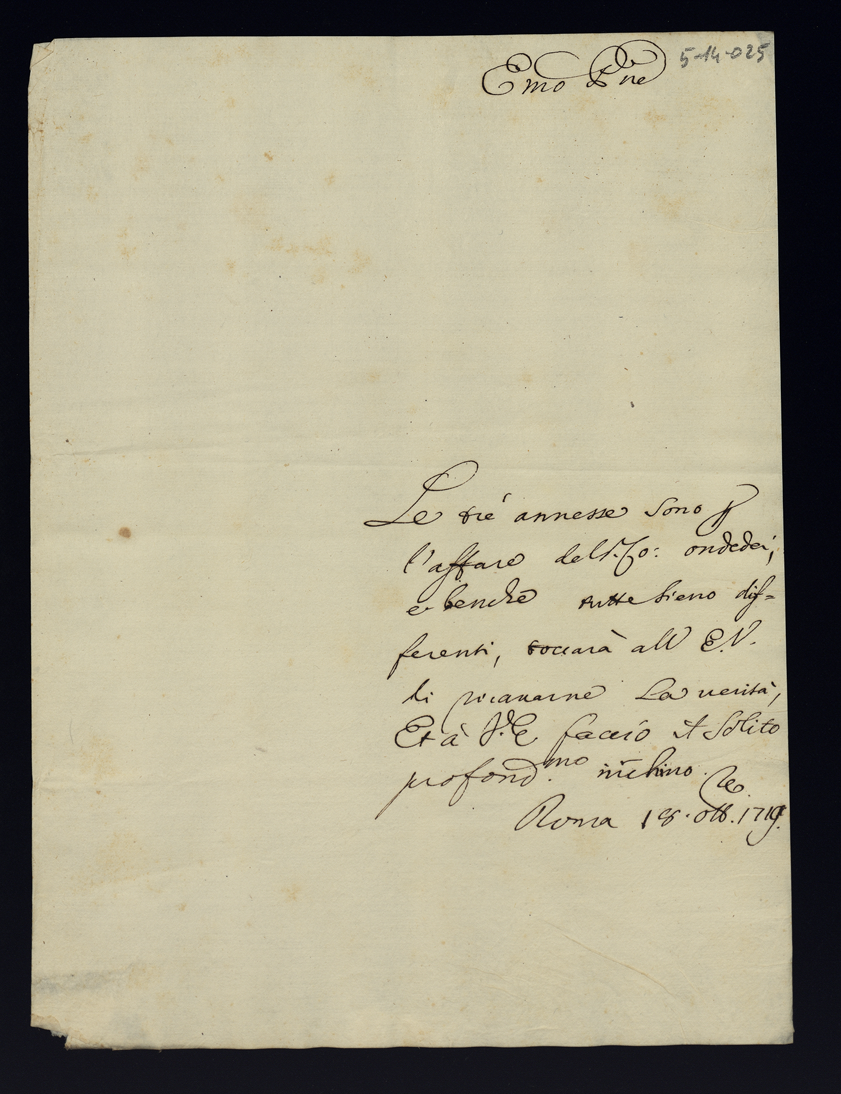 5-14-025
Emo Pne
Le tré annesse sono p
l'affare del S. Co: ondedei,
e benche tutte sieno dif=
ferenti, toccarà all E.V.
di ricavarne La verità,
Et à V.E. faccio il solito
profond.mo inchino.
Roma 18. ott. 1719.